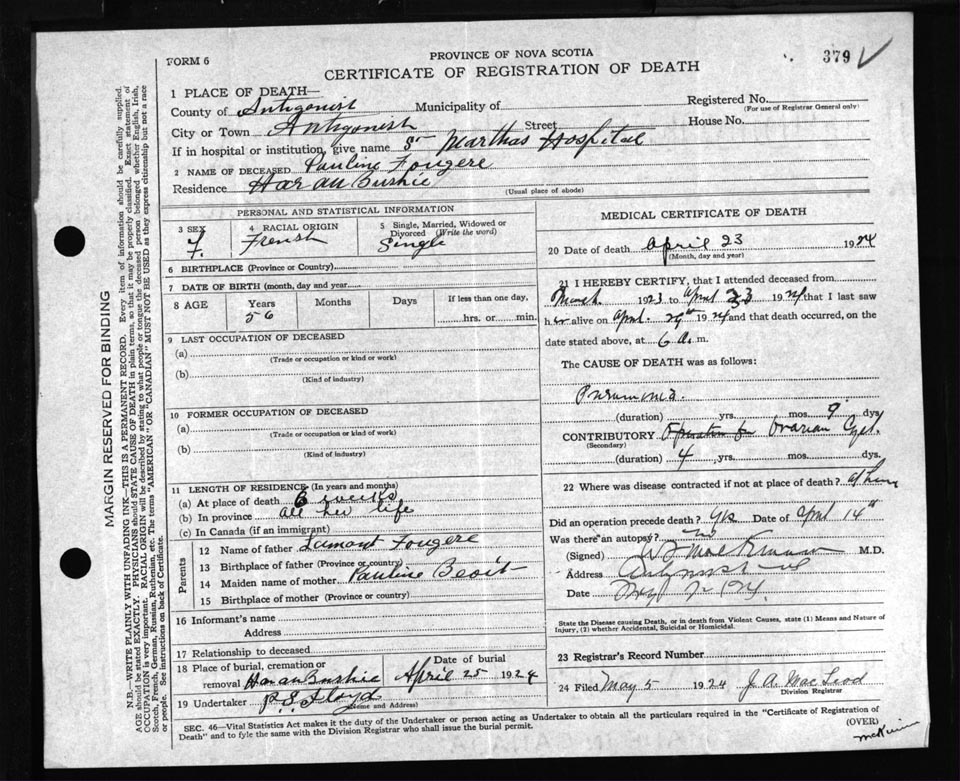 379
FORM 6
PROVINCE OF NOVA SCOTIA
CERTIFICATE OF REGISTRATION OF DEATH
1 PLACE OF DEATH—
County of Antigonish Municipality of
Registered No.
(For use of Registrar General only)
City or Town Antigonish Street House No.
If in hospital or institution, give name St Marthas Hospital
2 NAME OF DECEASED Pauline Fougere
Residence Har au Bushie
(Usual place of abode)
PERSONAL AND STATISTICAL INFORMATION
3 SEX F.
4 RACIAL ORIGIN French
5 Single, Married, Widowed or Divorced (Write the word) Single
6 BIRTHPLACE (Province or Country)
7 DATE OF BIRTH (month, day and year)
8 AGE Years 56 Months Days If less than one day, hrs. or min.
9 LAST OCCUPATION OF DECEASED
(a)
(Trade or occupation or kind or work)
(b)
(Kind of industry)
10 FORMER OCCUPATION OF DECEASED
(a)
(Trade or occupation or kind of work)
(b)
(Kind of industry)
11 LENGTH OF RESIDENCE (In years and months)
(a) At place of death 6 weeks
(b) In province all her life
(c) In Canada (if an immigrant)
Parents
12 Name of father Lamont Fougere
13 Birthplace of father (Province or country)
14 Maiden name of mother Pauline Beoit
15 Birthplace of mother (Province or country)
16 Informant's name
Address
17 Relationship to deceased
18 Place of burial, cremation or removal Har au Bushie
Date of burial April 25 1924
19 Undertaker P.S. Floyd
(Name and Address)
MEDICAL CERTIFICATE OF DEATH
20 Date of death April 23 1924
(Month, day and year)
21 I HEREBY CERTIFY, that I attended deceased from
March 1923 to April 23 1924 that I last saw
her alive on April 1924 and that death occurred, on the
date stated above, at 6 A. m.
The CAUSE OF DEATH was as follows:
Pneumonia.
(duration) yrs. mos. 9 dys
CONTRIBUTORY Operation for Ovarian Cyst.
(Secondary)
(duration) 4 yrs. mos. dys.
22 Where was disease contracted if not at place of death?
Did an operation precede death? Yes Date of April 14th
Was there an autopsy? no
(Signed) M.D.
Address
Date
State the Disease causing Death, or in death from Violent Causes, state (1) Means and Nature of
Injury, (2) whether Accidental, Suicidal or Homicidal.
23 Registrar's Record Number
24 Filed May 5 1924 J. A. MacLeod
Division Registrar
SEC. 46—Vital Statistics Act makes it the duty of the Undertaker or person acting as Undertaker to obtain all the particulars required in the "Certificate of Registration of
Death" and to fyle the same with the Division Registrar who shall issue the burial permit.
(OVER)
MARGIN RESERVED FOR BINDING
N.B.—WRITE PLAINLY WITH UNFADING INK—THIS IS A PERMANENT RECORD. Every item of information should be carefully supplied.
AGE should be stated EXACTLY. PHYSICIANS should STATE CAUSE OF DEATH in plain terms, so that it may be properly classified. Exact statement of
OCCUPATION is very important. RACIAL ORIGIN will be described by stating to what people or tongue the deceased person belonged whether English, Irish,
Scotch, French, German, Russian, Ruthenian, etc. The terms "AMERICAN" OR "CANADIAN" MUST NOT BE USED as they express citizenship but not a race
or people. See instructions on back of Certificate.